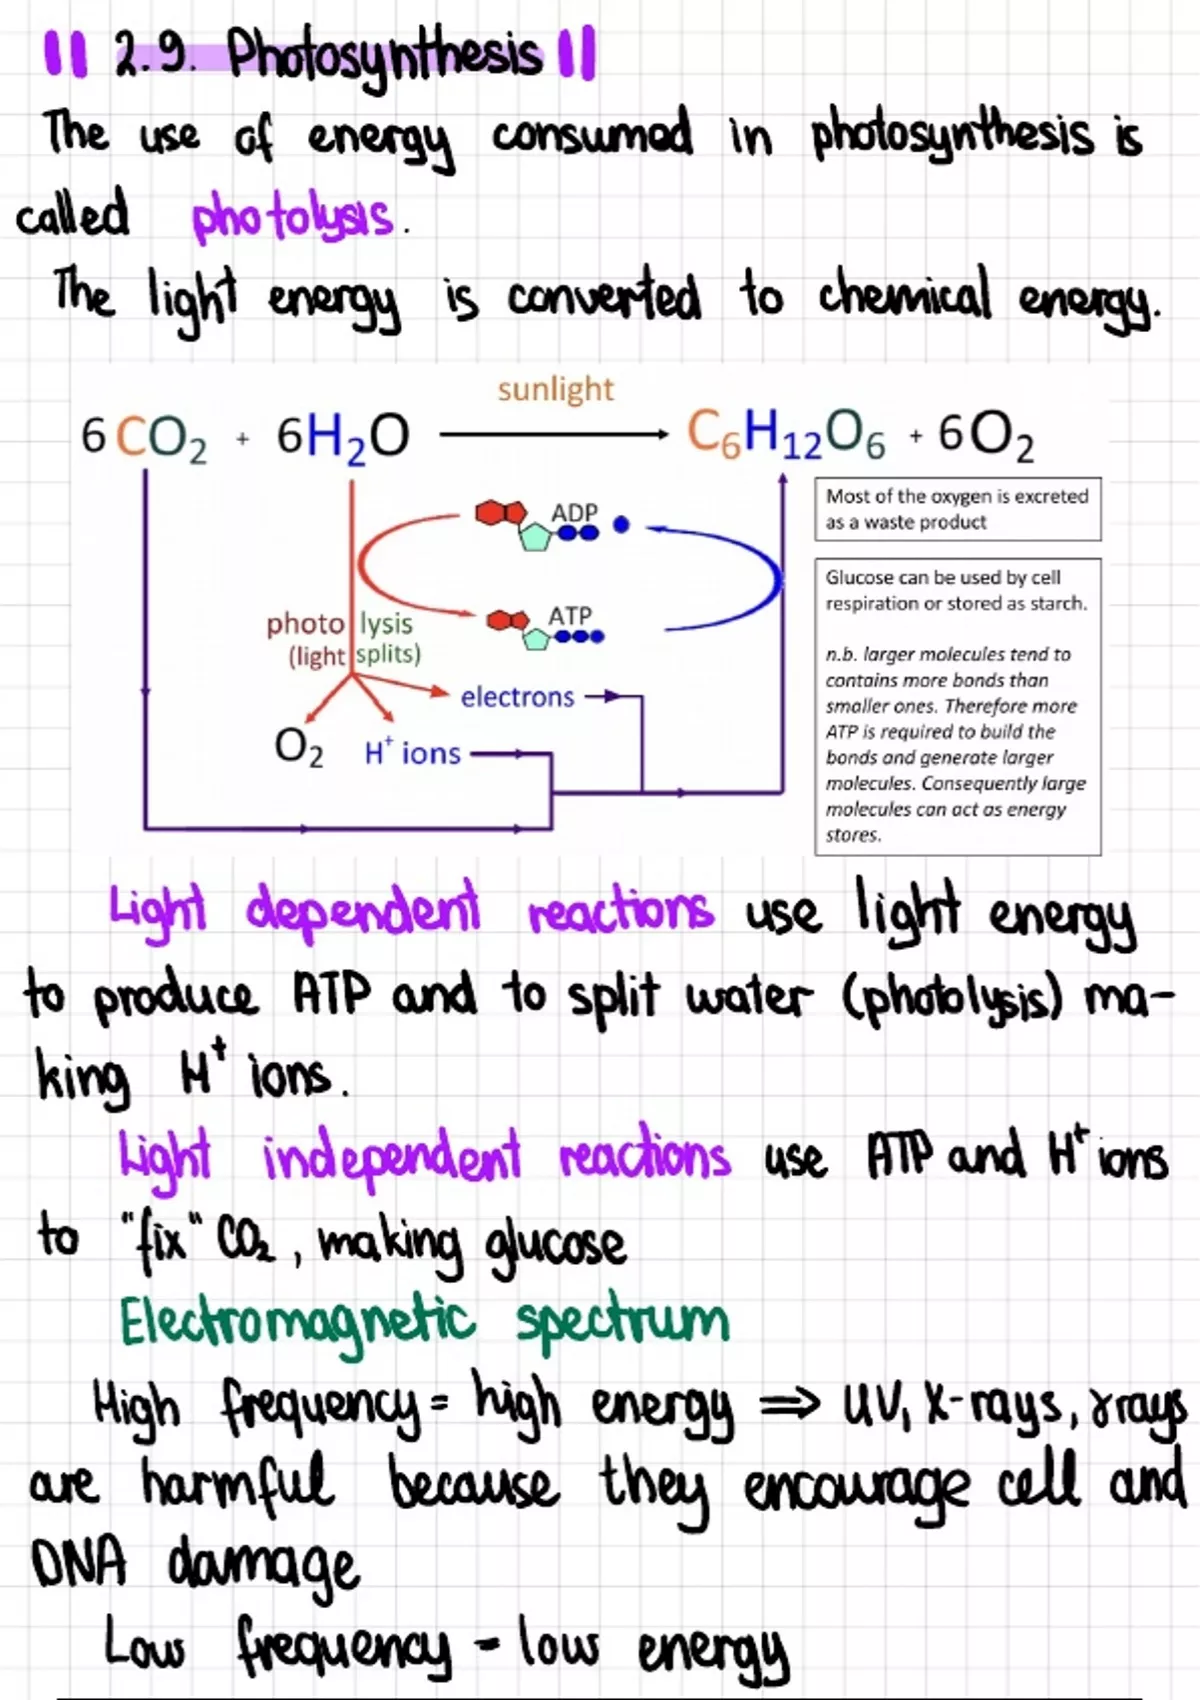 2.9. Photosynthesis
The use of energy consumed in photosynthesis is
called photolysis.
The light energy is converted to chemical energy.
sunlight
6 CO₂ + 6H₂O → C₆H₁₂O₆ + 6O₂
Most of the oxygen is excreted
as a waste product
ADP
Glucose can be used by cell
respiration or stored as starch.
ATP
photo lysis
(light splits)
n.b. larger molecules tend to
contains more bonds than
smaller ones. Therefore more
ATP is required to build the
bonds and generate larger
molecules. Consequently large
molecules can act as energy
stores.
electrons
O₂
H⁺ ions
Light dependent reactions use light energy
to produce ATP and to split water (photolysis) ma-
king H⁺ ions.
Light independent reactions use ATP and H⁺ ions
to "fix" CO₂, making glucose
Electromagnetic spectrum
High frequency = high energy ⇒ UV, X-rays, γrays
are harmful because they encourage cell and
DNA damage
Low frequency - low energy